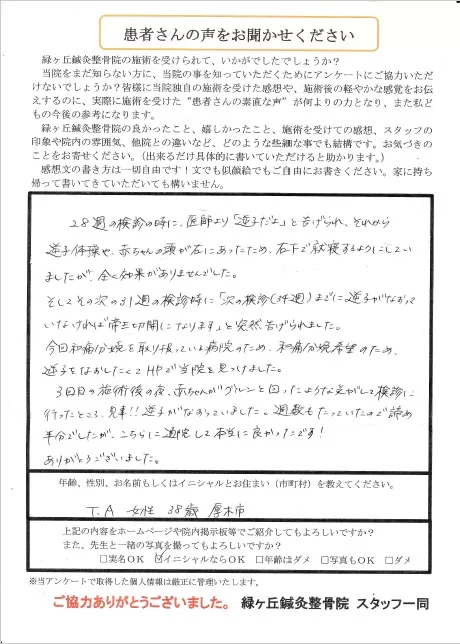 患者さんの声をお聞かせください
緑ヶ丘鍼灸整骨院の施術を受けられて、いかがでしたでしょうか?
当院をまだ知らない方に、当院の事を知っていただくためにアンケートにご協力いただ
けないでしょうか?皆様に当院独自の施術を受けた感想や、施術後の軽やかな感覚をお伝
えするのに、実際に施術を受けた"患者さんの素直な声"が何よりの力となり、また私ど
もの今後の参考になります。
緑ヶ丘鍼灸整骨院の良かったこと、嬉しかったこと、施術を受けての感想、スタッフの
印象や院内の雰囲気、他院との違いなど、どのような些細な事でも結構です。お気づきの
ことをお寄せください。(出来るだけ具体的に書いていただけると助かります。)
感想文の書き方は一切自由です!文でも似顔絵でもご自由にお書きください。家に持ち
帰って書いてきていただいても構いません。
28週の検診の時に、医師より「逆子だよ」と告げられ、それから
逆子体操や、赤ちゃんの頭が左にあったため、右下で就寝するようにしてい
ましたが、全く効果がありませんでした。
そしてその次の31週の検診時に「次の検診(34週)までに逆子がなおって
いなければ帝王切開になります」と突然告げられました。
今回和痛分娩を取り扱っている病院のため、和痛分娩希望のため、
逆子をなおしたくてHPで当院を見つけました。
3回目の施術後の夜、赤ちゃんがグルンと回ったような気がして検診に
行ったところ、見事!!逆子がなおっていました。週数もたっていたので諦め
半分でしたが、こちらに通院して本当に良かったです!
ありがとうございました。
年齢、性別、お名前もしくはイニシャルとお住まい(市町村)を教えてください。
T.A 女性 38歳 厚木市
上記の内容をホームページや院内掲示板等でご紹介してもよろしいですか?
また、先生と一緒の写真を撮ってもよろしいですか?
□実名OK ☑イニシャルならOK □年齢はダメ □写真もOK □ダメ
※当アンケートで取得した個人情報は厳正に管理いたします。
ご協力ありがとうございました。 緑ヶ丘鍼灸整骨院 スタッフ一同